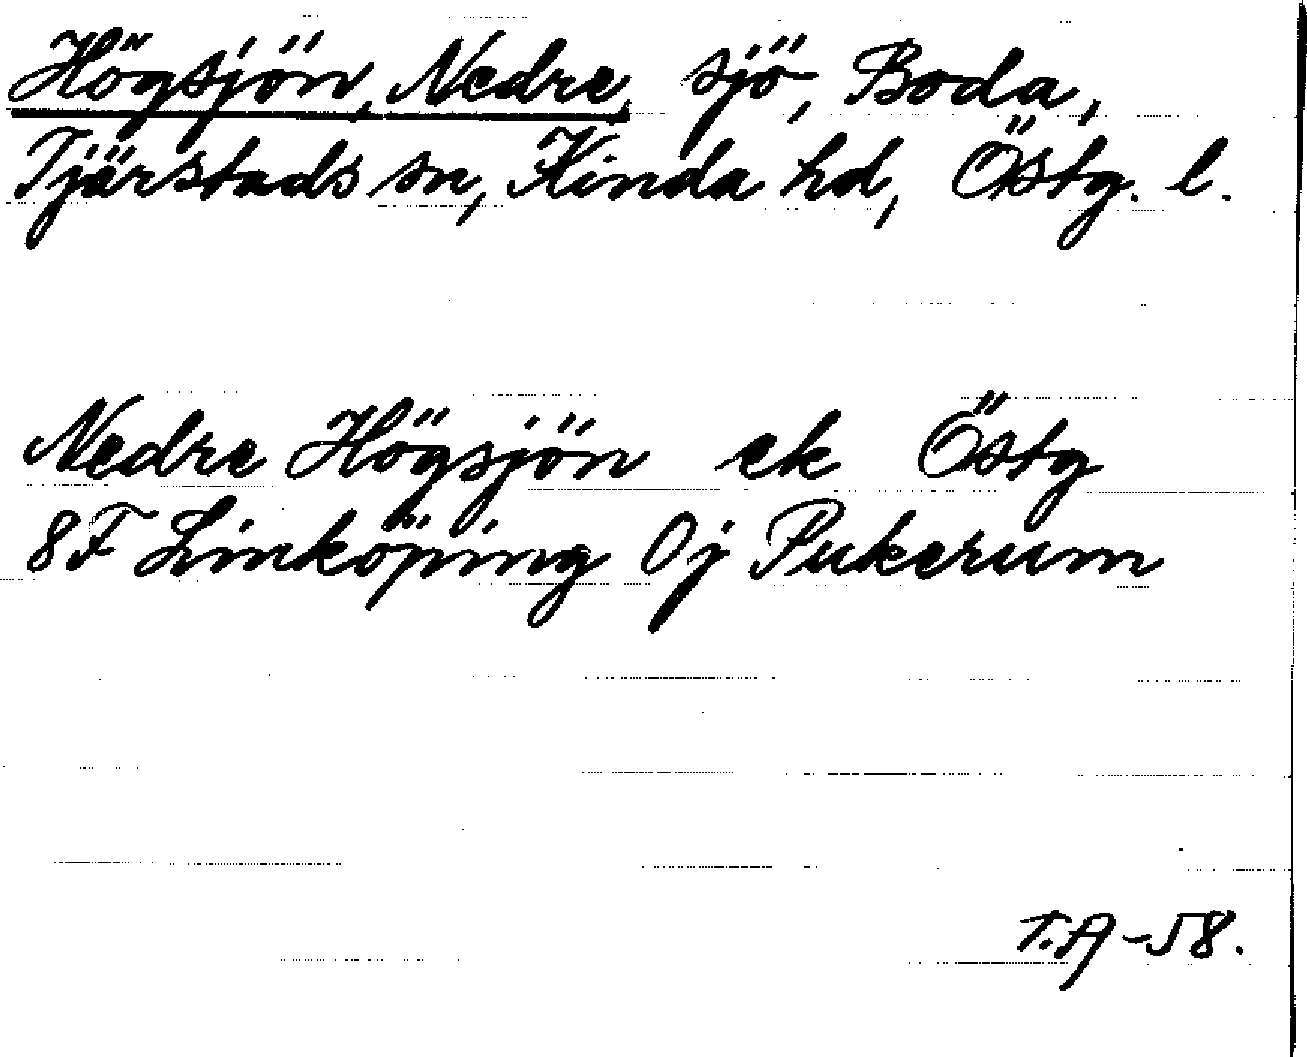 Högsjön, Nedre, sjö, Boda,
Tjärstads sn, Kinda hd, Östg. l.
Nedre Högsjön ek Östg
8F Linköping 0j Pukerum
T.A-58.